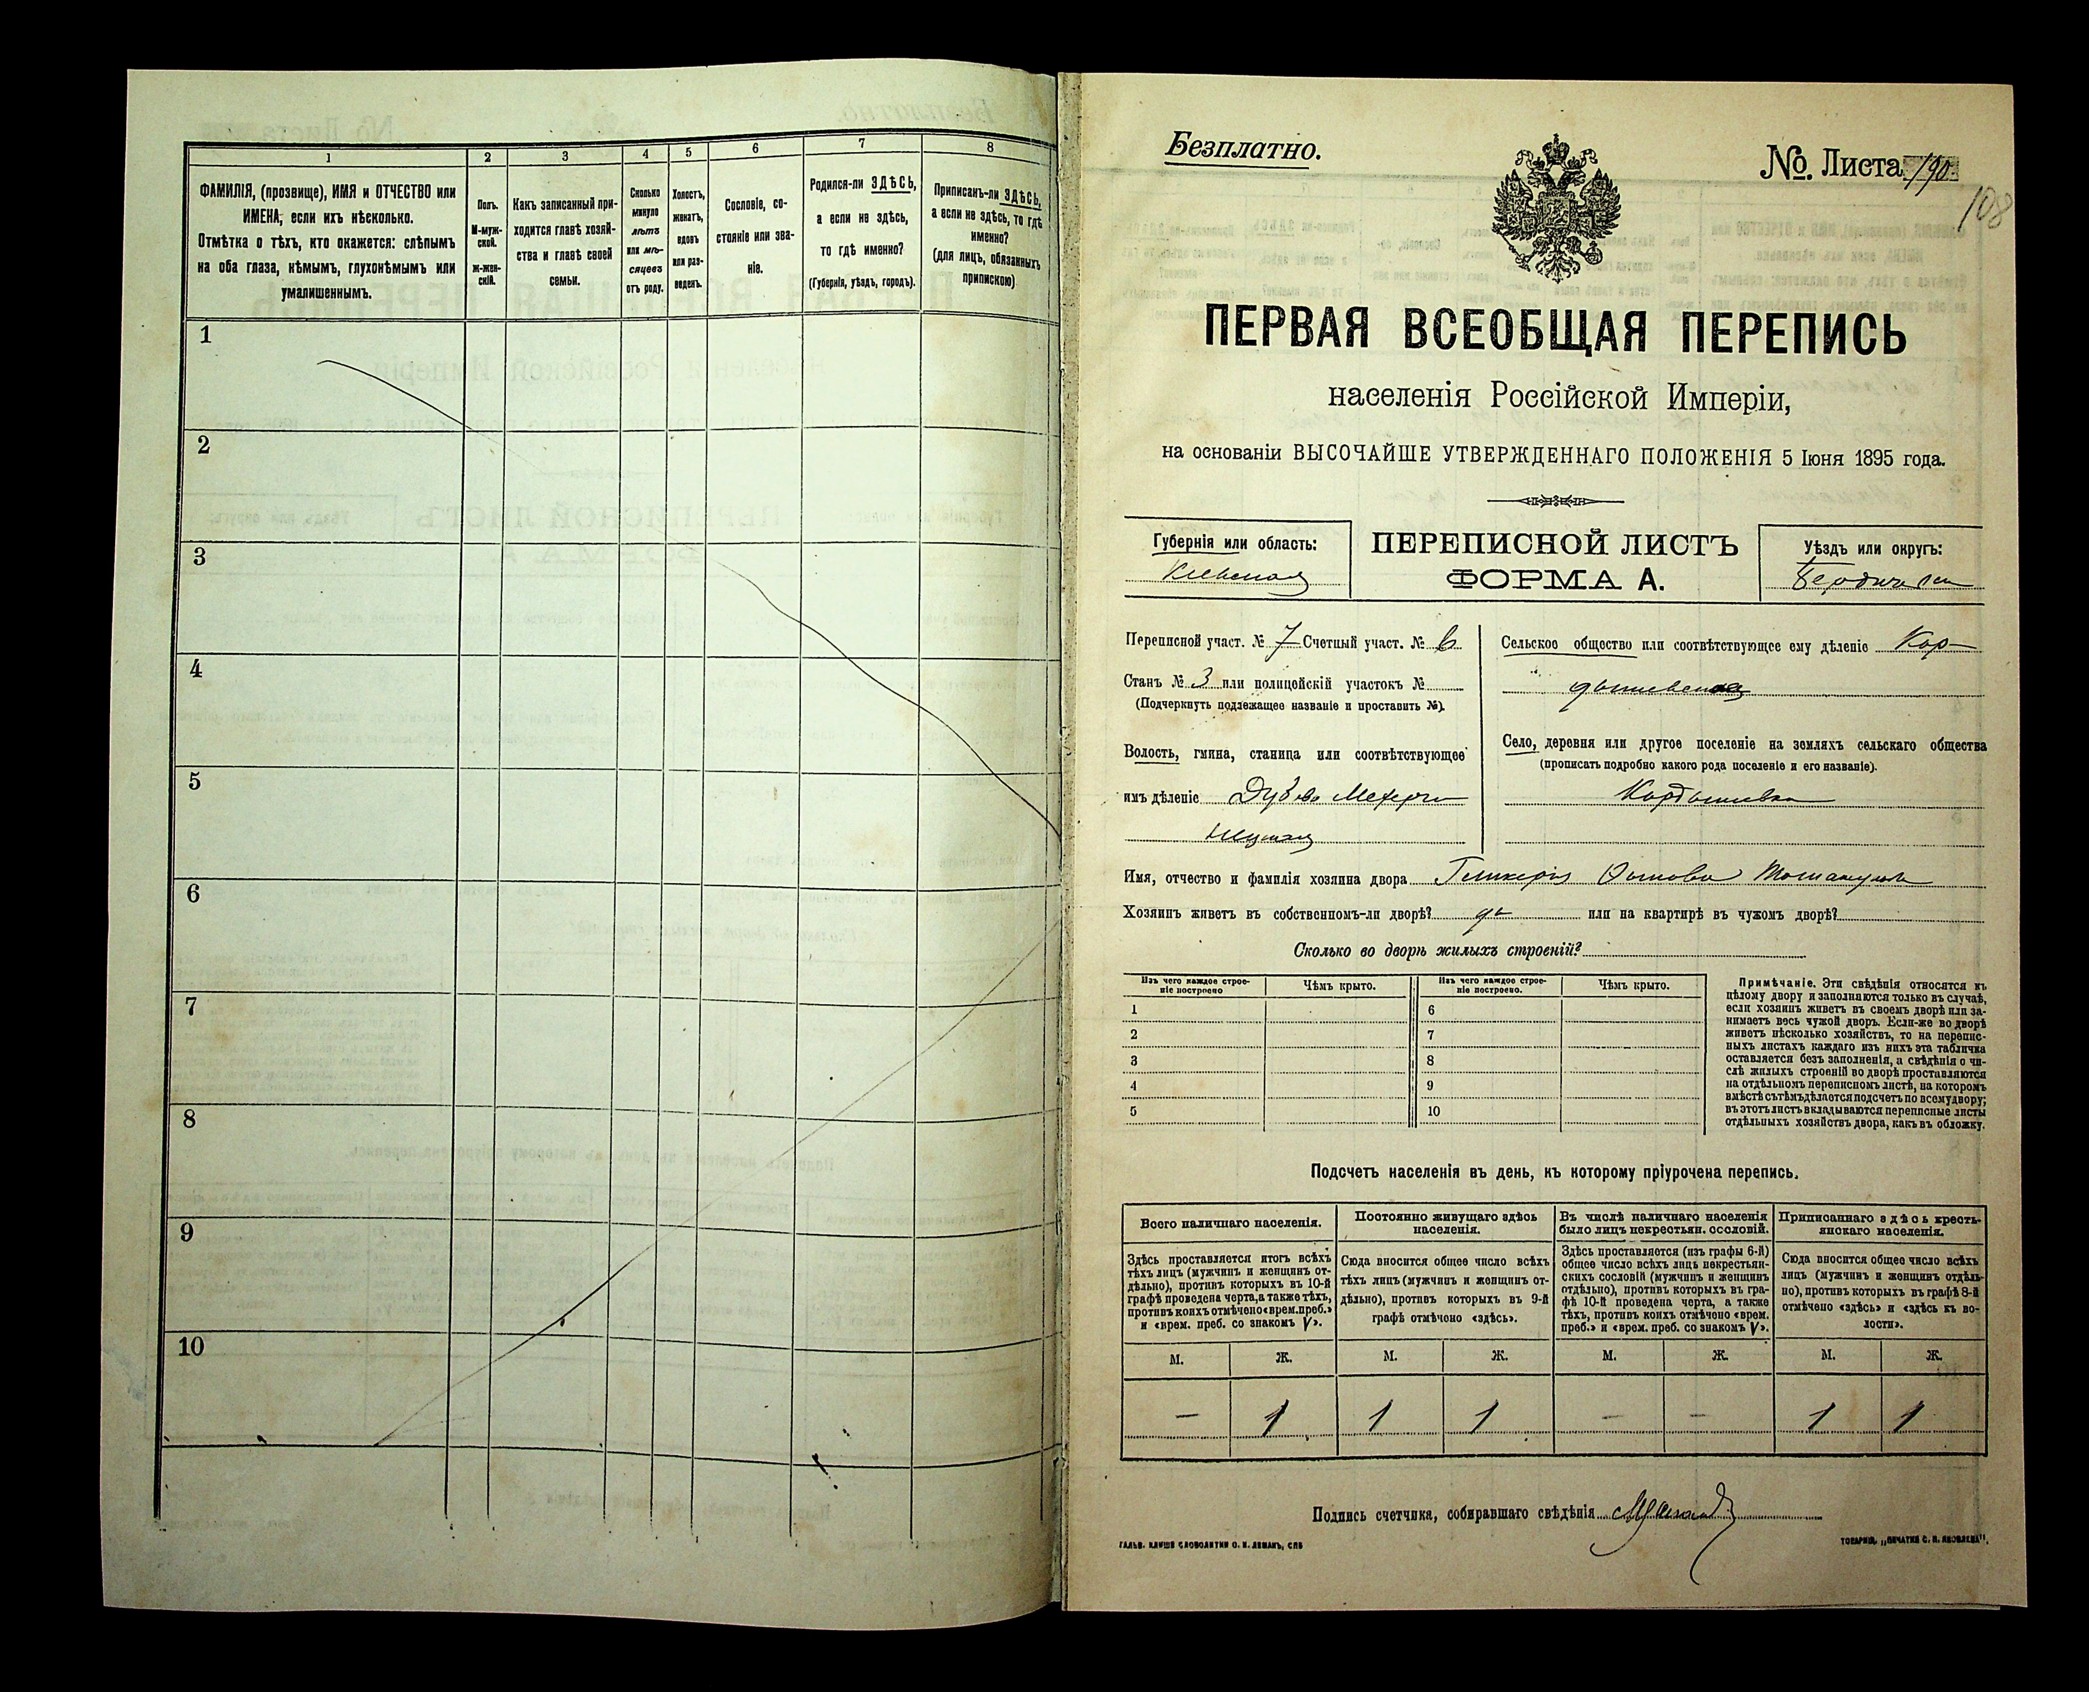 1
2
3
4
5
6
7
8
ФАМИЛІЯ, (прозвище), ИМЯ и ОТЧЕСТВО или
ИМЕНА, если ихъ нѣсколько.
Отмѣтка о тѣхъ, кто окажется: слѣпымъ
на оба глаза, нѣмымъ, глухонѣмымъ или
умалишеннымъ.
Полъ.
М-муж-
ской.
ж-жен-
скій.
Какъ записанный при-
ходится главѣ хозяй-
ства и главѣ своей
семьи.
Сколько
минуло
лѣтъ
или мѣ-
сяцевъ
отъ роду.
Холостъ,
женатъ,
вдовъ
или раз-
веденъ.
Сословіе, со-
стояніе или зва-
ніе.
Родился-ли ЗДѢСЬ,
а если не здѣсь,
то гдѣ именно?
(Губернія, уѣздъ, городъ).
Приписанъ-ли ЗДѢСЬ,
а если не здѣсь, то гдѣ
именно?
(для лицъ, обязанныхъ
припискою)
1
2
3
4
5
6
7
8
9
10
Безплатно.
№. Листа 190
108
ПЕРВАЯ ВСЕОБЩАЯ ПЕРЕПИСЬ
населенія Россійской Имперіи,
на основаніи ВЫСОЧАЙШЕ УТВЕРЖДЕННАГО ПОЛОЖЕНІЯ 5 Іюня 1895 года.
Губернія или область:
Кіевская
ПЕРЕПИСНОЙ ЛИСТЪ
ФОРМА А.
Уѣздъ или округъ:
Бердичевск
Переписной участ. № 7 Счетный участ. № 6
Станъ № 3 или полицейскій участокъ №
(Подчеркнуть подлежащее названіе и проставить №).
Волость, гмина, станица или соотвѣтствующее
имъ дѣленіе Дубово Махари
нецкая
Сельское общество или соотвѣтствующее ему дѣленіе Кор-
дышевское
Село, деревня или другое поселеніе на земляхъ сельскаго общества
(прописать подробно какого рода поселеніе и его названіе).
Кордышевка
Имя, отчество и фамилія хозяина двора
Хозяинъ живетъ въ собственномъ-ли дворѣ? да или на квартирѣ въ чужомъ дворѣ?
Сколько во дворѣ жилыхъ строеній?
Изъ чего каждое строе-
ніе построено
Чѣмъ крыто.
Изъ чего каждое строе-
ніе построено.
Чѣмъ крыто.
1
2
3
4
5
6
7
8
9
10
Примѣчаніе. Эти свѣдѣнія относятся къ
цѣлому двору и заполняются только въ случаѣ,
если хозяинъ живетъ въ своемъ дворѣ или за-
нимаетъ весь чужой дворъ. Если-же во дворѣ
живетъ нѣсколько хозяйствъ, то на перепис-
ныхъ листахъ каждаго изъ нихъ эта табличка
оставляется безъ заполненія, а свѣдѣнія о чи-
слѣ жилыхъ строеній во дворѣ проставляются
на отдѣльномъ переписномъ листѣ, на которомъ
вмѣстѣ съ тѣмъ дѣлается подсчетъ по всему двору;
въ этотъ листъ вкладываются переписные листы
отдѣльныхъ хозяйствъ двора, какъ въ обложку.
Подсчетъ населенія въ день, къ которому пріурочена перепись.
Всего наличнаго населенія.
Здѣсь проставляется итогъ всѣхъ
тѣхъ лицъ (мужчинъ и женщинъ от-
дѣльно), противъ которыхъ въ 10-й
графѣ проведена черта, а также тѣхъ,
противъ коихъ отмѣчено «врем. преб.»
и «врем. преб. со знакомъ V».
Постоянно живущаго здѣсь
населенія.
Сюда вносится общее число всѣхъ
тѣхъ лицъ (мужчинъ и женщинъ от-
дѣльно), противъ которыхъ въ 9-й
графѣ отмѣчено «здѣсь».
Въ числѣ наличнаго населенія
было лицъ некрестьян. сословій.
Здѣсь проставляется (изъ графы 6-й)
общее число всѣхъ лицъ некрестьян-
скихъ сословій (мужчинъ и женщинъ
отдѣльно), противъ которыхъ въ гра-
фѣ 10-й проведена черта, а также
тѣхъ, противъ коихъ отмѣчено «врем.
преб.» и «врем. преб. со знакомъ V».
Приписаннаго здѣсь кресть-
янскаго населенія.
Сюда вносится общее число всѣхъ
лицъ (мужчинъ и женщинъ отдѣль-
но), противъ которыхъ въ графѣ 8-й
отмѣчено «здѣсь» и «здѣсь къ во-
лости».
М. Ж. М. Ж. М. Ж. М. Ж.
– 1 1 1 – – 1 1
Подпись счетчика, собиравшаго свѣдѣнія
ГАЛЬВ. КЛИШЕ СЛОВОЛИТНИ О. И. ЛЕМАНЪ, СПБ
ТОВАРИЩ. „ПЕЧАТНЯ С. П. ЯКОВЛЕВА".